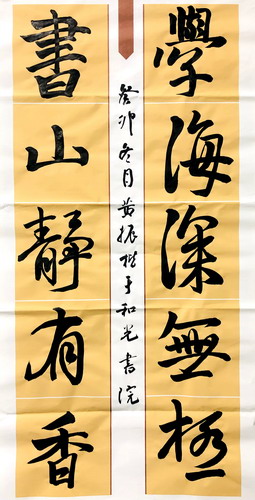 學海深無極
書山靜有香
癸卯冬月黄振楷于和光書院